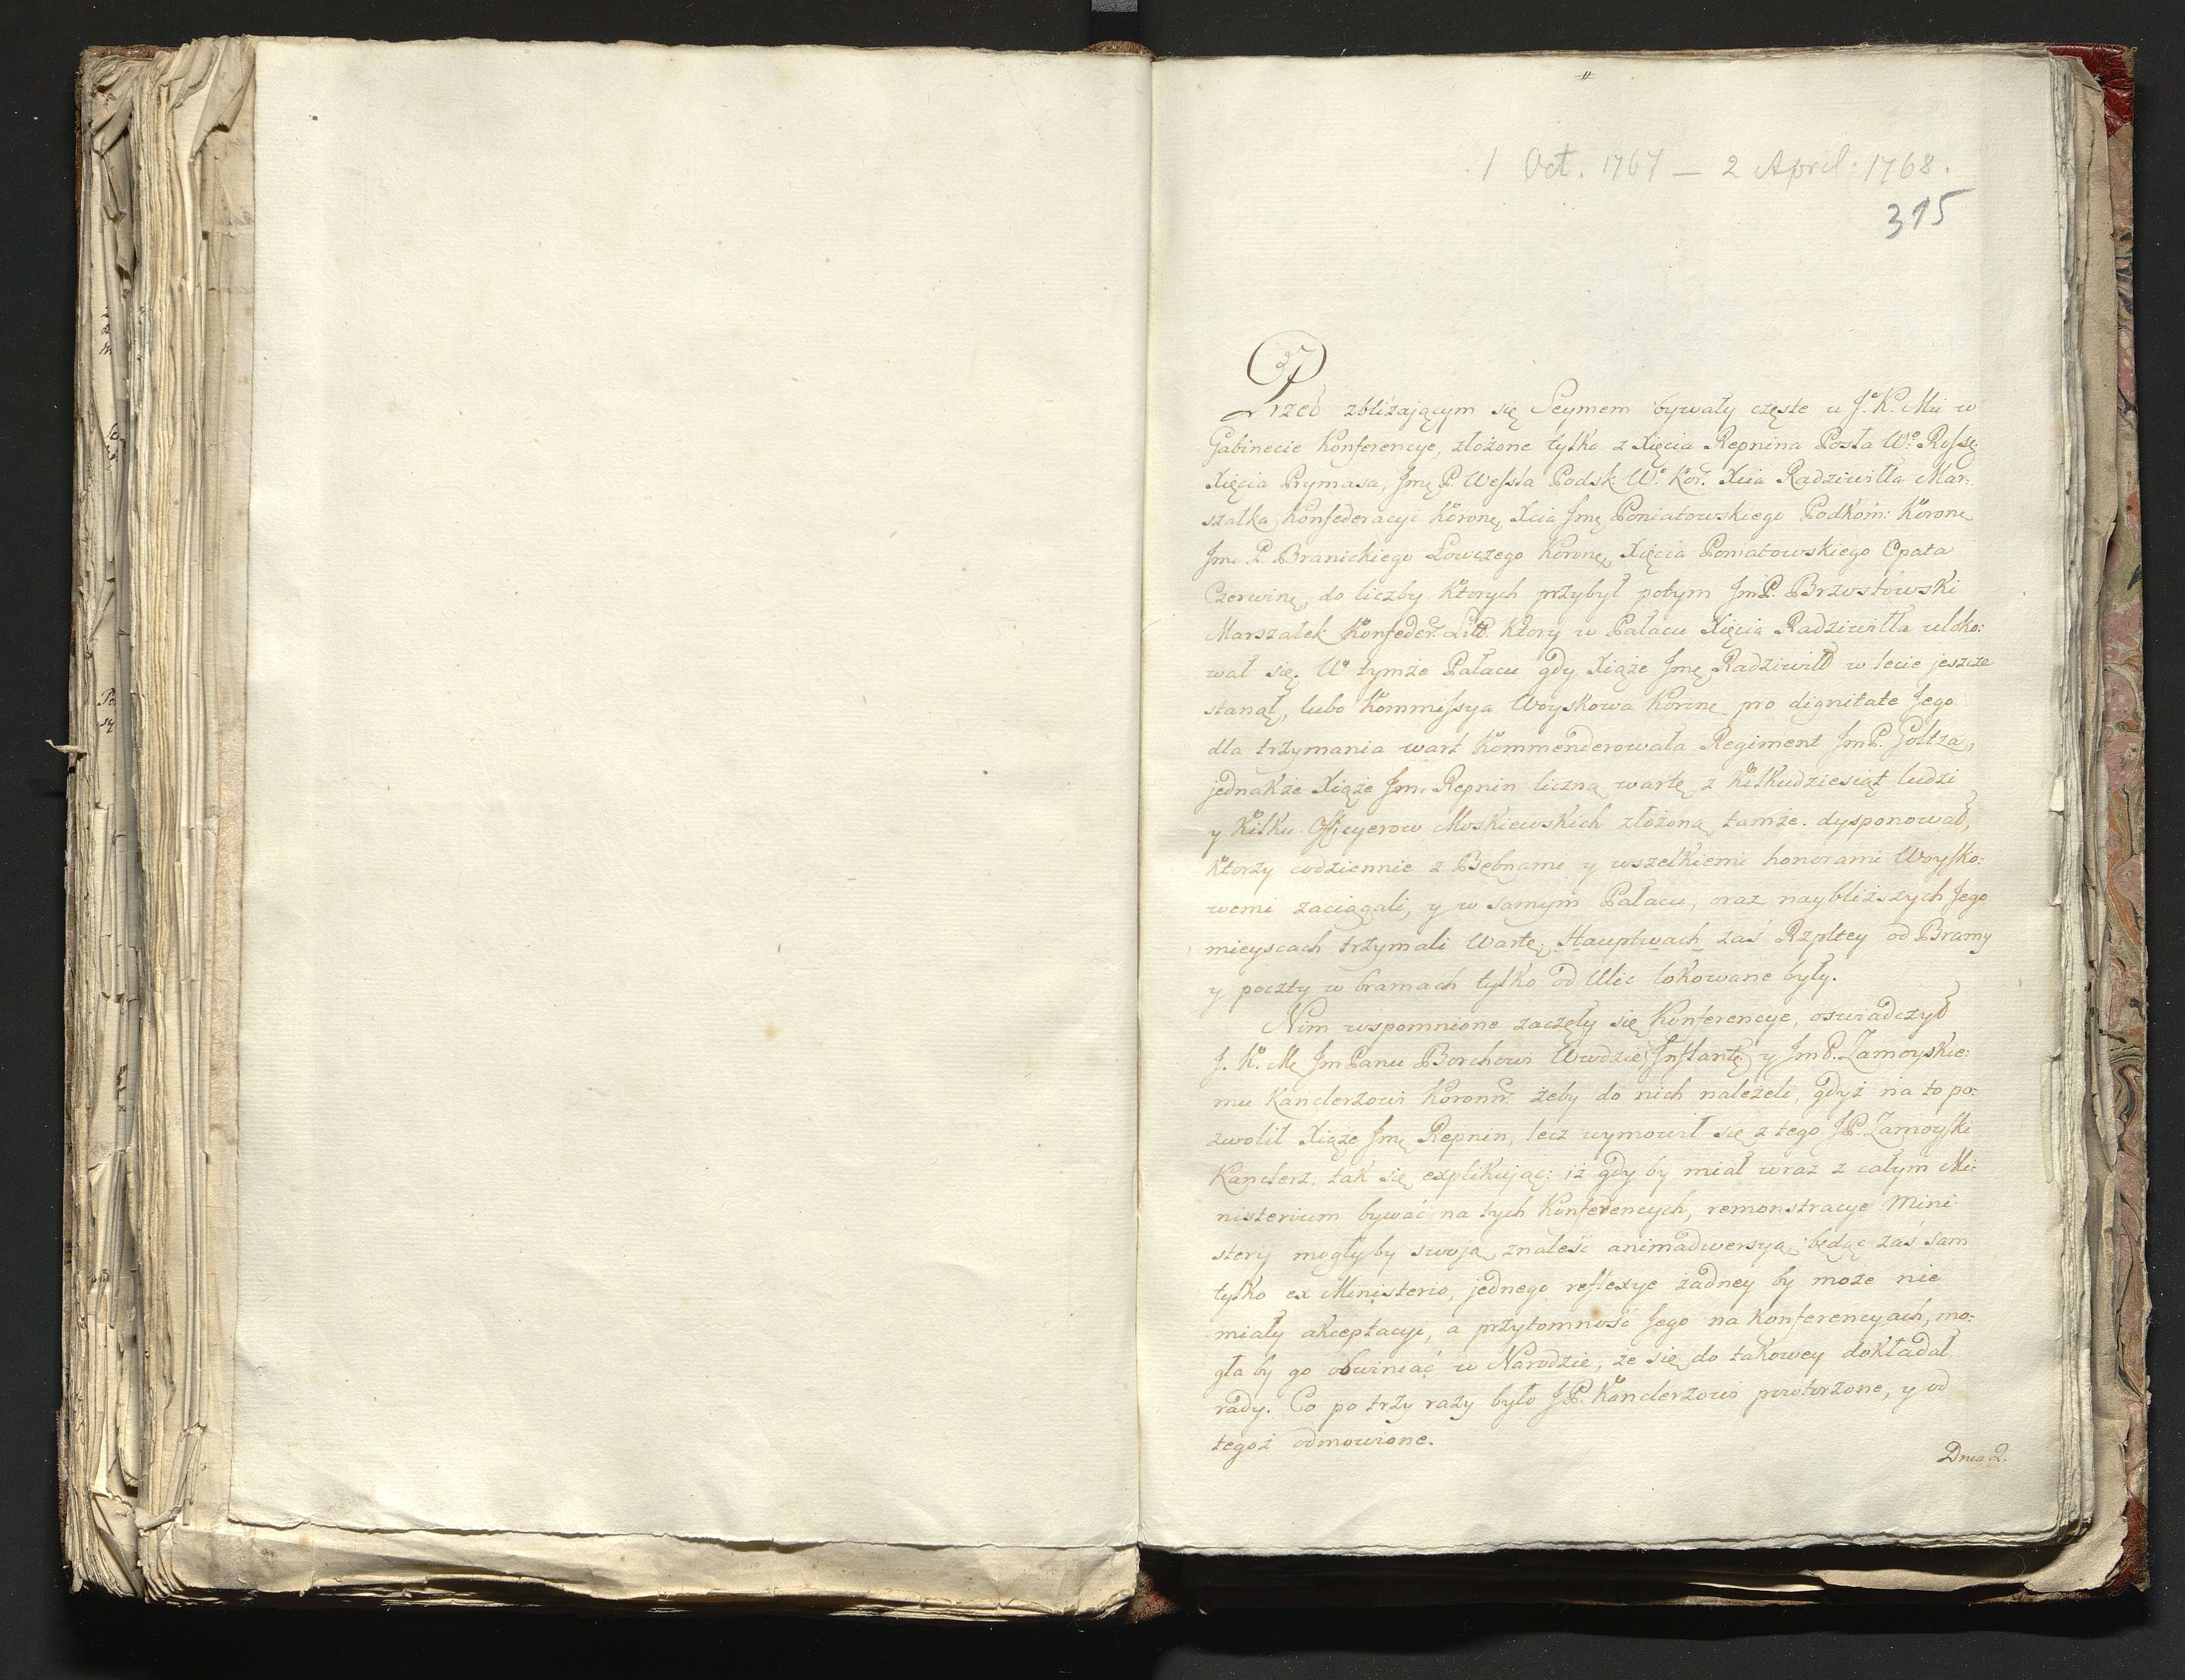 1 Oct. 1767 — 2 April: 1768.
315
Przed zbliżającym się Seymem bywały częste u J. K. Mci w
Gabinecie Konferencye, złożone tylko z Xięcia Repnina Posła Wo Rossę:
Xięcia Prymasa, Jmę P. Wessla Podsk: W. Kor. Xcia Radziwiłła Mar:
szałka Konfederacyi Koronę, Xcia Jmę Poniatowskiego Podkom: Koronę
Jm. P. Branickiego Łowczego Koronę, Xięcia Poniatowskiego Opata
Czerwinę, do liczby ktorych przybył potym JmP. Brzostowski
Marszałek Konfeder. Litt. ktory w Pałacu Xięcia Radziwiłła uloko:
wał się. W tymże Pałacu gdy Xiąże Jmę Radziwiłł w lecie jeszcze
stanął, lubo Kommissya Woyskowa Koronę pro dignitate Jego
dla trzymania wart kommenderowała Regiment JmP. Goltza,
jednakże Xiąże Jm. Repnin liczną wartę z kilkudziesiąt ludzi
y kilku Officyerow Moskiewskich złożoną tamże dysponował,
ktorzy codziennie z Bębnami y wszelkiemi honorami Woysko:
wemi zaciągali, y w samym Pałacu, oraz naybliższych Jego
mieyscach trzymali Wartę; Hauptwach zaś Rzpltey od Bramy
y poczty w bramach tylko od Ulic lokowane były.
Nim wspomnione zaczęły się Konferencye, oswiadczył
J. K. Mę JmPanu Borchowi Wwdzie Inflantę y JmP. Zamoyskie:
mu Kanclerzowi Koronn. żeby do nich należeli, gdyż na to po:
zwolił Xiąże Jmę Repnin, lecz wymowił się z tego JP. Zamoyski
Kanclerz, tak się explikując: iż gdy by miał wraz z całym Mi:
nisterium bywać na tych Konferencych, remonstracye Mini
sterij mogły by swoją znaleść animadwersyą, będąc zaś sam
tylko ex Ministerio, jednego reflexye żadney by może nie
miały akceptacyi, a przytomność Jego na Konferencyach, mo:
gła by go obwiniać w Narodzie, że się do takowey dokładał
rady. Co po trzy razy było JP. Kanclerzowi powtorzone, y od
tegoż odmowione.
Dnia 2.